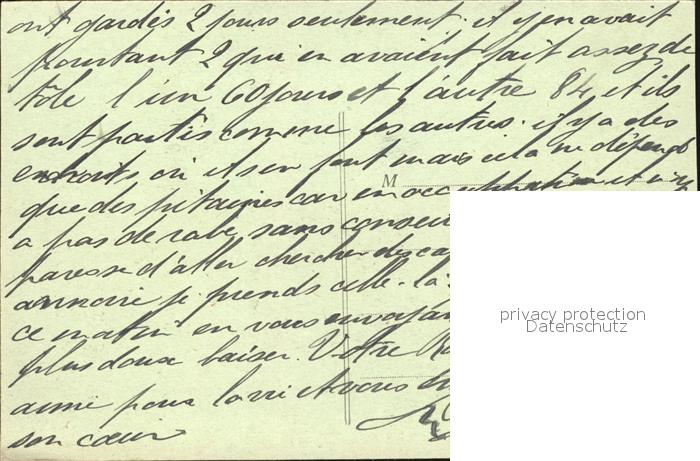 ont gardés 2 jours seulement. il y en avait
pourtant 2 qui en avaient fait assez de
tôle l'un 60 jours et l'autre 84 et ils
sont partis comme les autres. il y a des
endroits où ils en font mais cela ne dépend
M
que des pitaines car en occupation
a pas de rabe, sans
paresse d'aller chercher des
armoire je prends celle-là
ce matin en vous envoyant
plus doux baiser. Votre
aimé pour la vie et vous
son cœur
privacy protection
Datenschutz